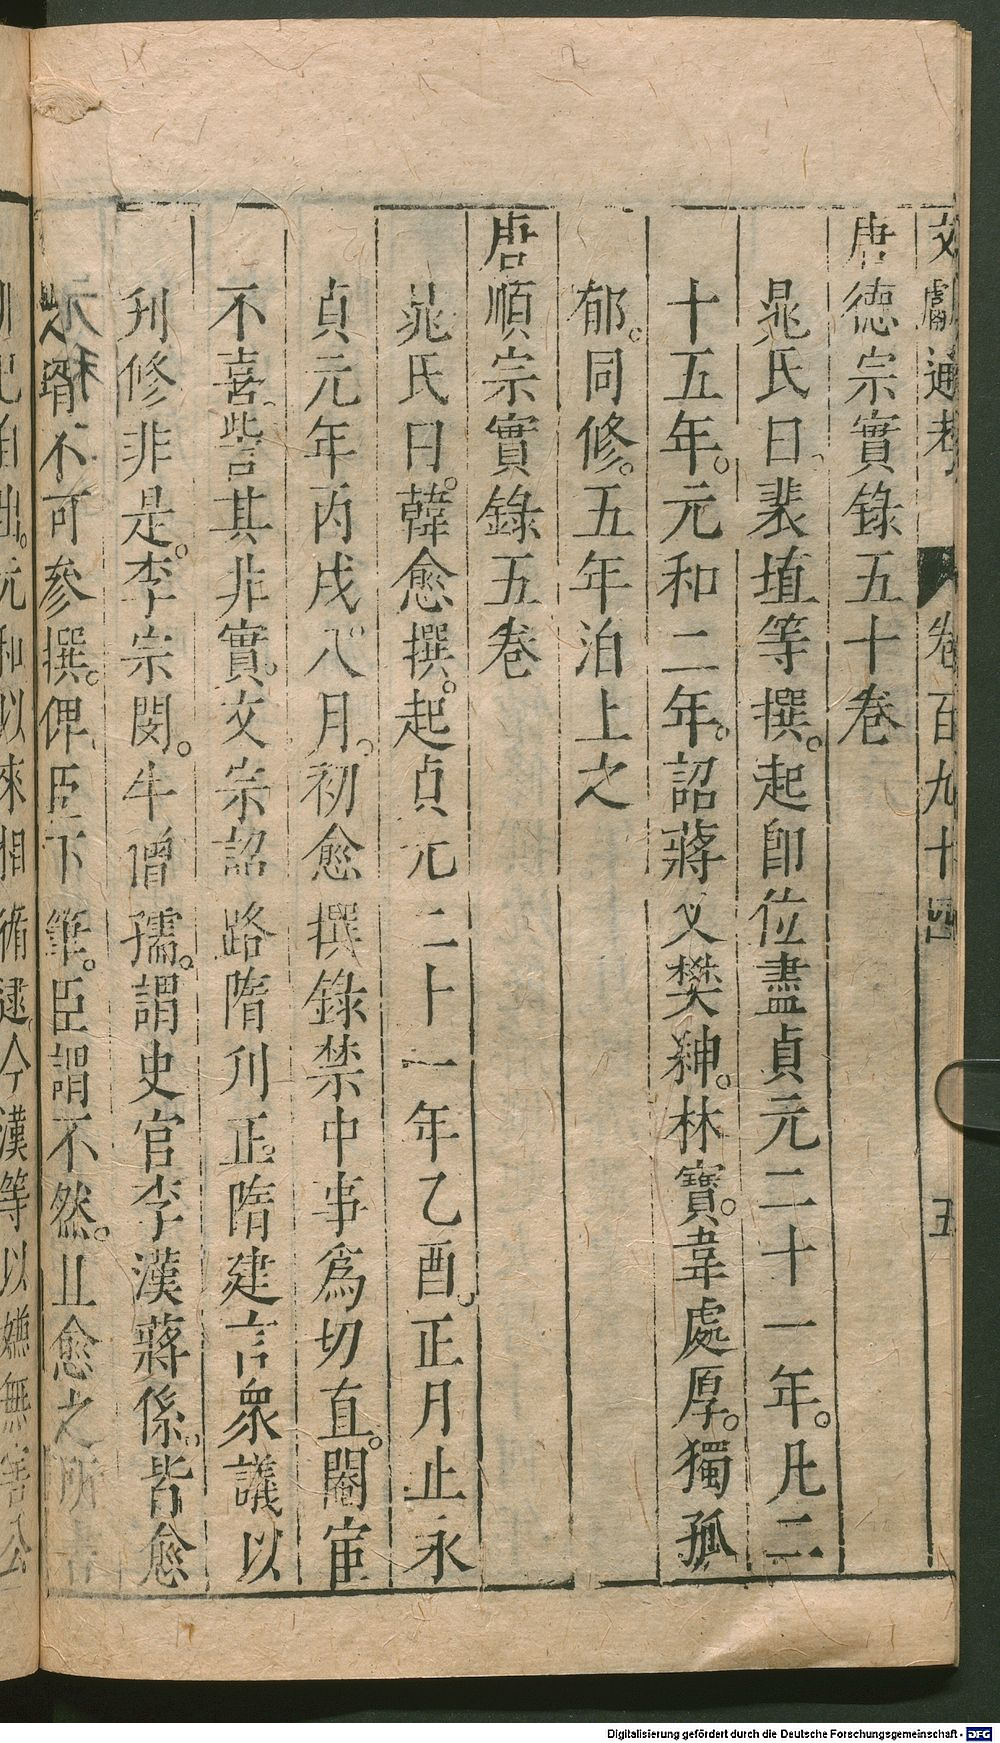 文獻通考 卷百九十四 五
唐德宗實錄五十卷
晁氏曰裴垍等撰。起即位盡貞元二十一年。凡二
十五年。元和二年。詔蔣乂樊紳。林寶。韋處厚。獨孤
郁。同修。五年泊上之
唐順宗實錄五卷
晁氏曰。韓愈撰。起貞元二十一年乙酉。正月止永
貞元年丙戌八月。初愈撰錄禁中事爲切直。閹宦
不喜。訾其非實。文宗詔路隋刋正。隋建言衆議以
刋修非是。李宗閔。牛僧孺。謂史官李漢蔣係。皆愈
之壻不可參撰。俾臣下筆。臣謂不然。且愈之所書
自出。元和以來相循逮。今漢等以嫌無害公
Digitalisierung gefördert durch die Deutsche Forschungsgemeinschaft - DFG